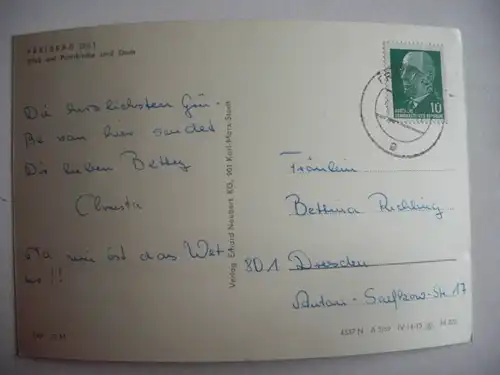 FREIBERG (Sa.)
Blick auf Petrikirche und Dom
Die herzlichsten Grü-
ße von hier sendet
Dir lieben Betty
Christa
Na wie ist das Wet
ter!!
Verlag Erhard Neubert KG, 901 Karl-Marx-Stadt
10
DEUTSCHE DEMOKRATISCHE REPUBLIK
Fräulein
Bettina Richling
801 Dresden
Anton-Saefkow-Str 17